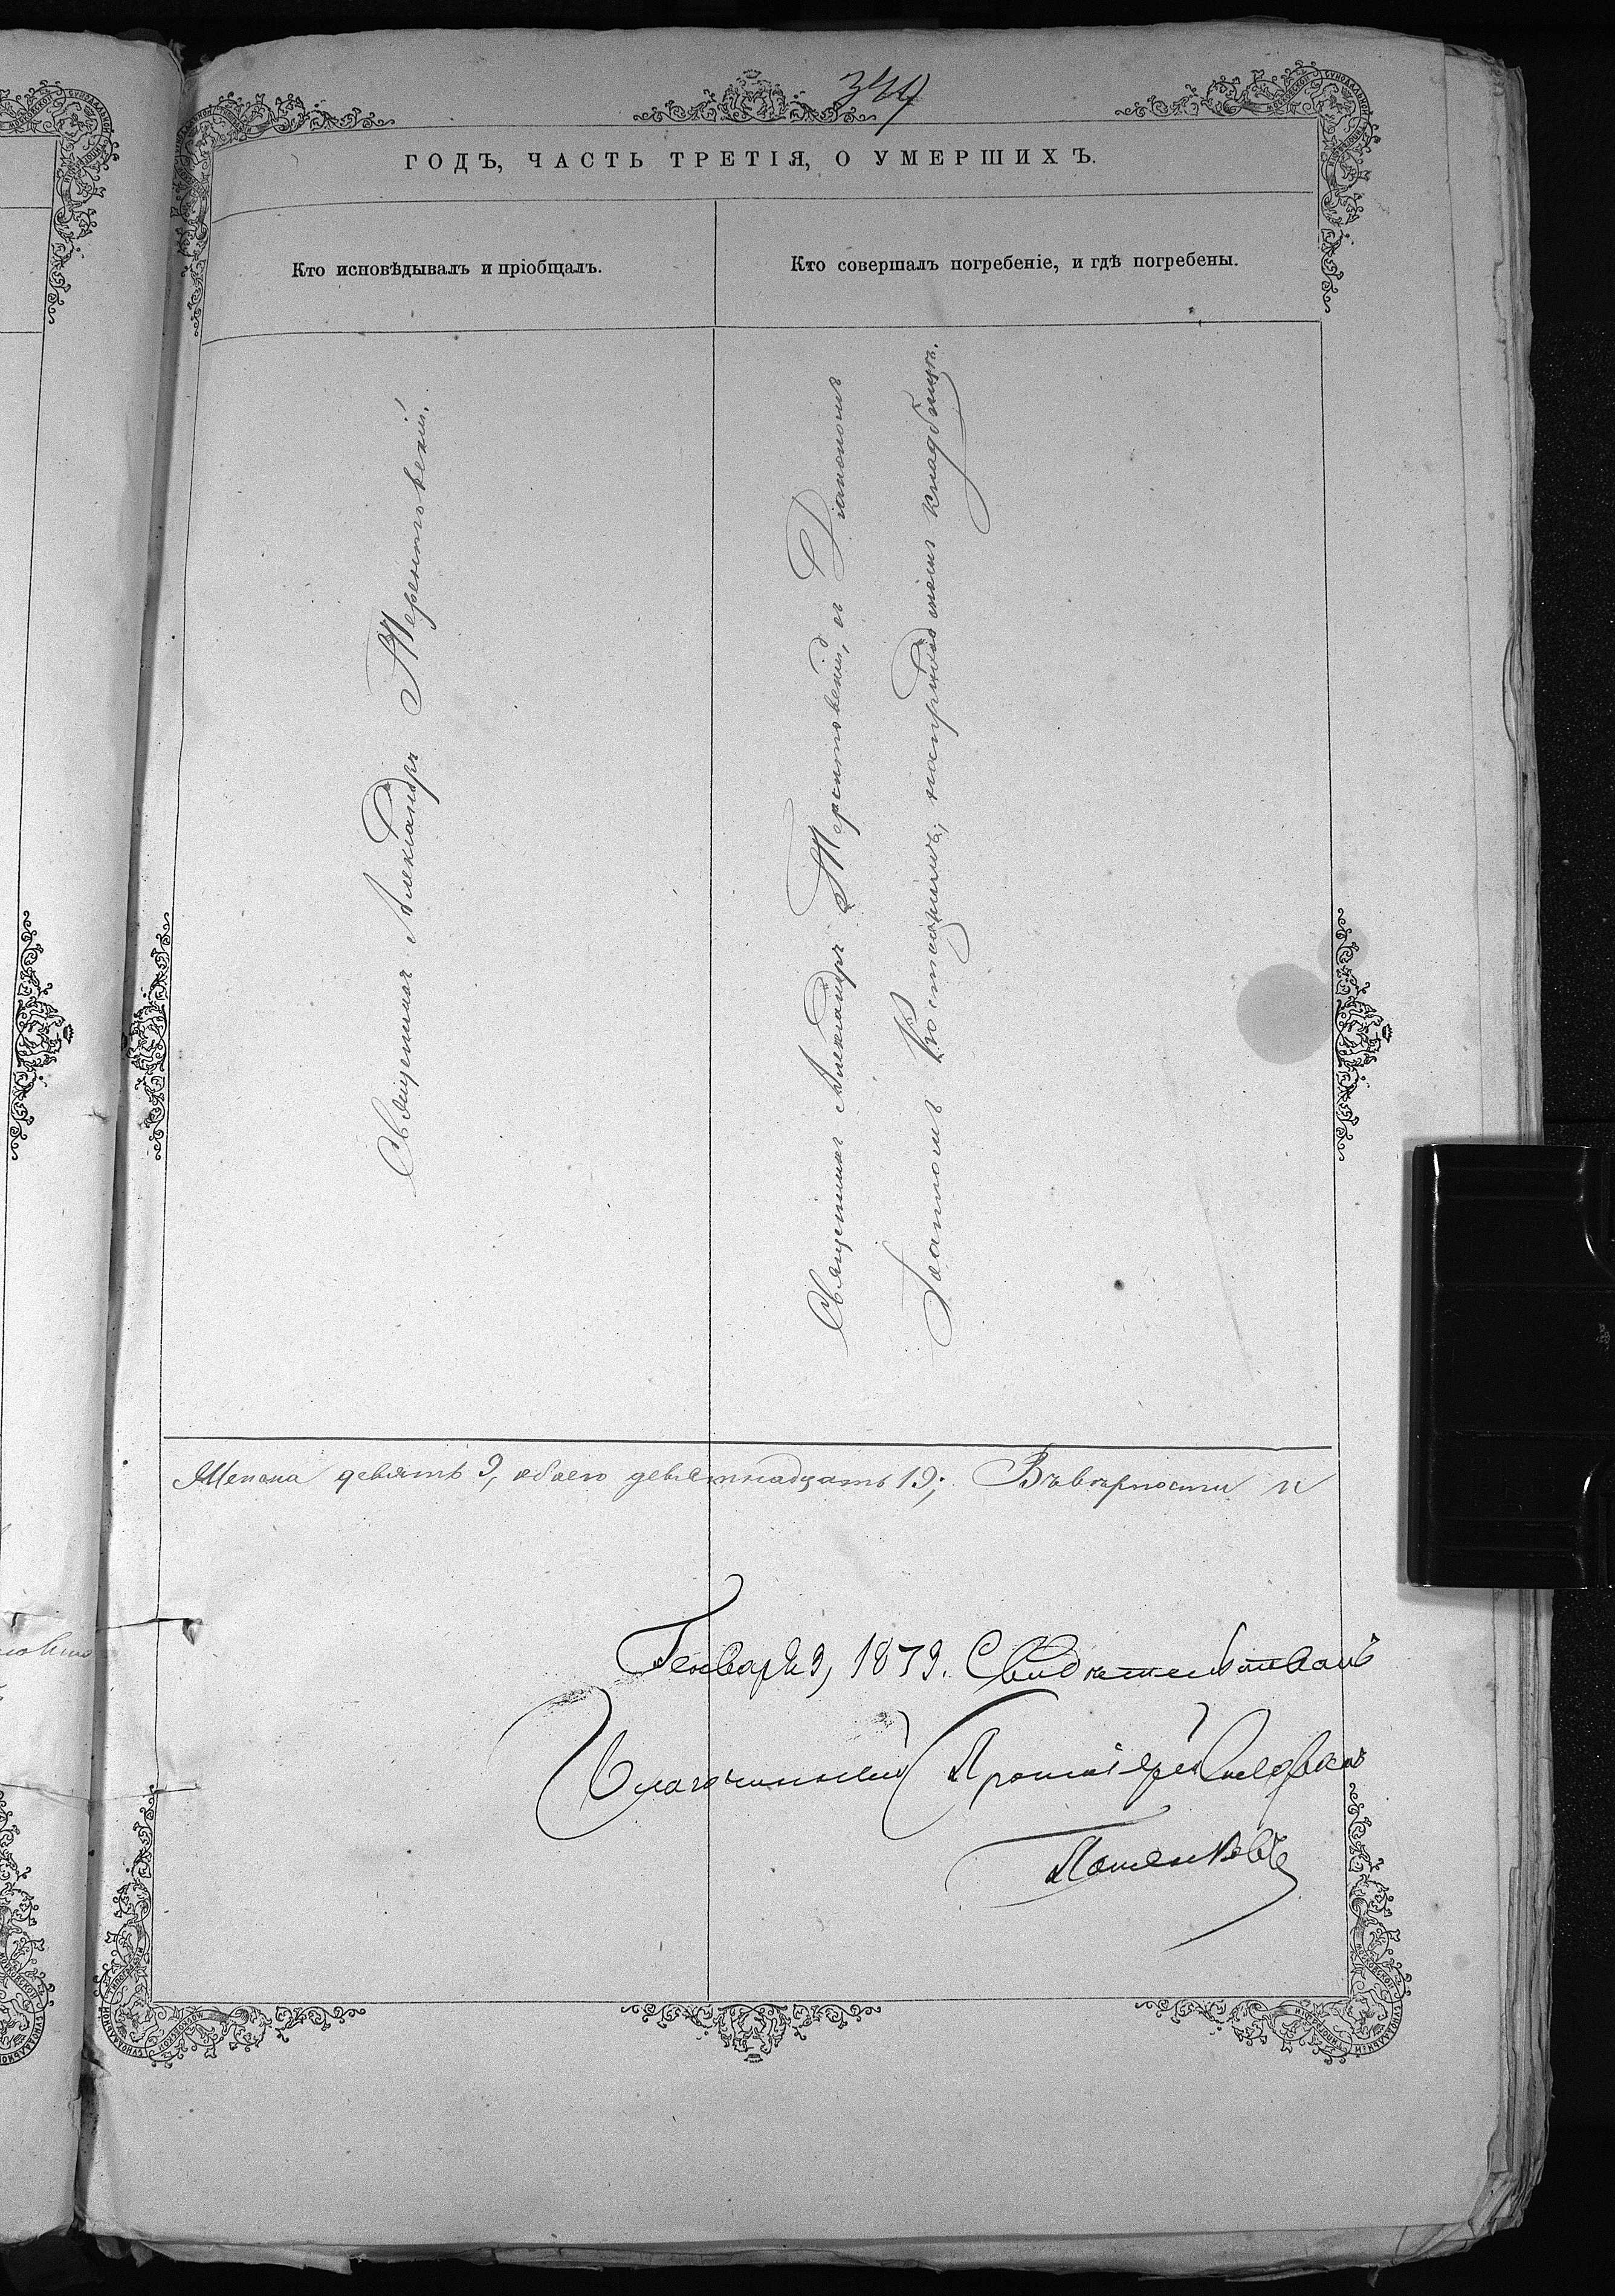 349
ГОДЪ, ЧАСТЬ ТРЕТІЯ, О УМЕРШИХЪ.
Кто исповѣдывалъ и пріобщалъ.
Кто совершалъ погребеніе, и гдѣ погребены.
Священникъ Александръ Терентовскій.
Священникъ Александръ Терентовскій, съ Діакономъ
Іоанномъ Костицынымъ, на приходскомъ кладбищѣ.
Женска девять 9, обоего девятнадцать 19; Въ вѣрности и
Генваря 9, 1879. Свидѣтельствовалъ
Благочинный Протоіерей